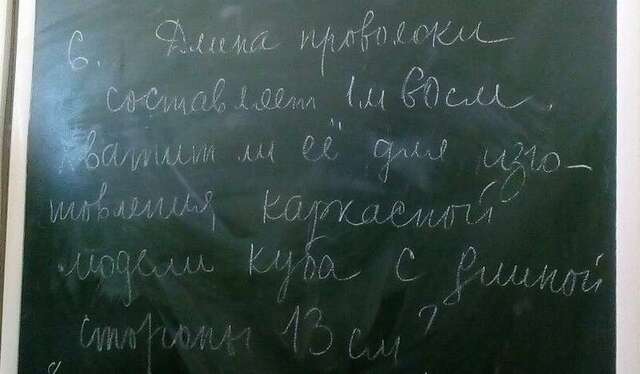 6. Длина проволоки
составляет 1м 80см.
Хватит ли её для изго-
товления каркасной
модели куба с длиной
стороны 13 см?